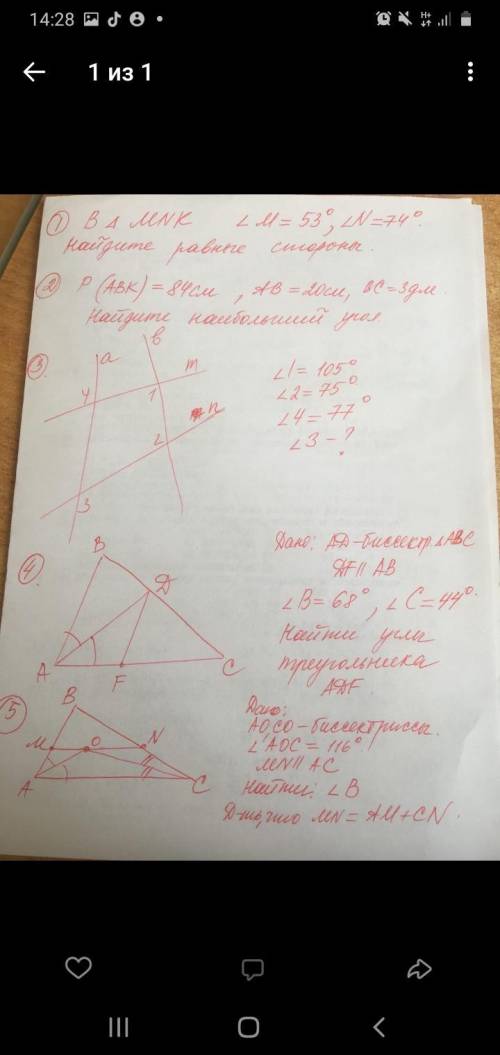 14:28
1 из 1
① В Δ MNK ∠M = 53°, ∠N = 74°.
Найдите равные стороны.
② P(ABK) = 84см, AB = 20см, BC = 3дм.
Найдите наибольший угол.
③
a
b
m
n
4
1
2
3
∠1 = 105°
∠2 = 75°
∠4 = 77°
∠3 - ?
④
B
D
A
F
C
Дано: AD - биссектр. ΔABC
DF || AB
∠B = 68°, ∠C = 44°.
Найти углы
треугольника
ADF
⑤
B
M
O
N
A
C
Дано:
AO, CO - биссектриссы.
∠AOC = 116°
MN || AC
Найти: ∠B
Д-ть, что MN = AM + CN.